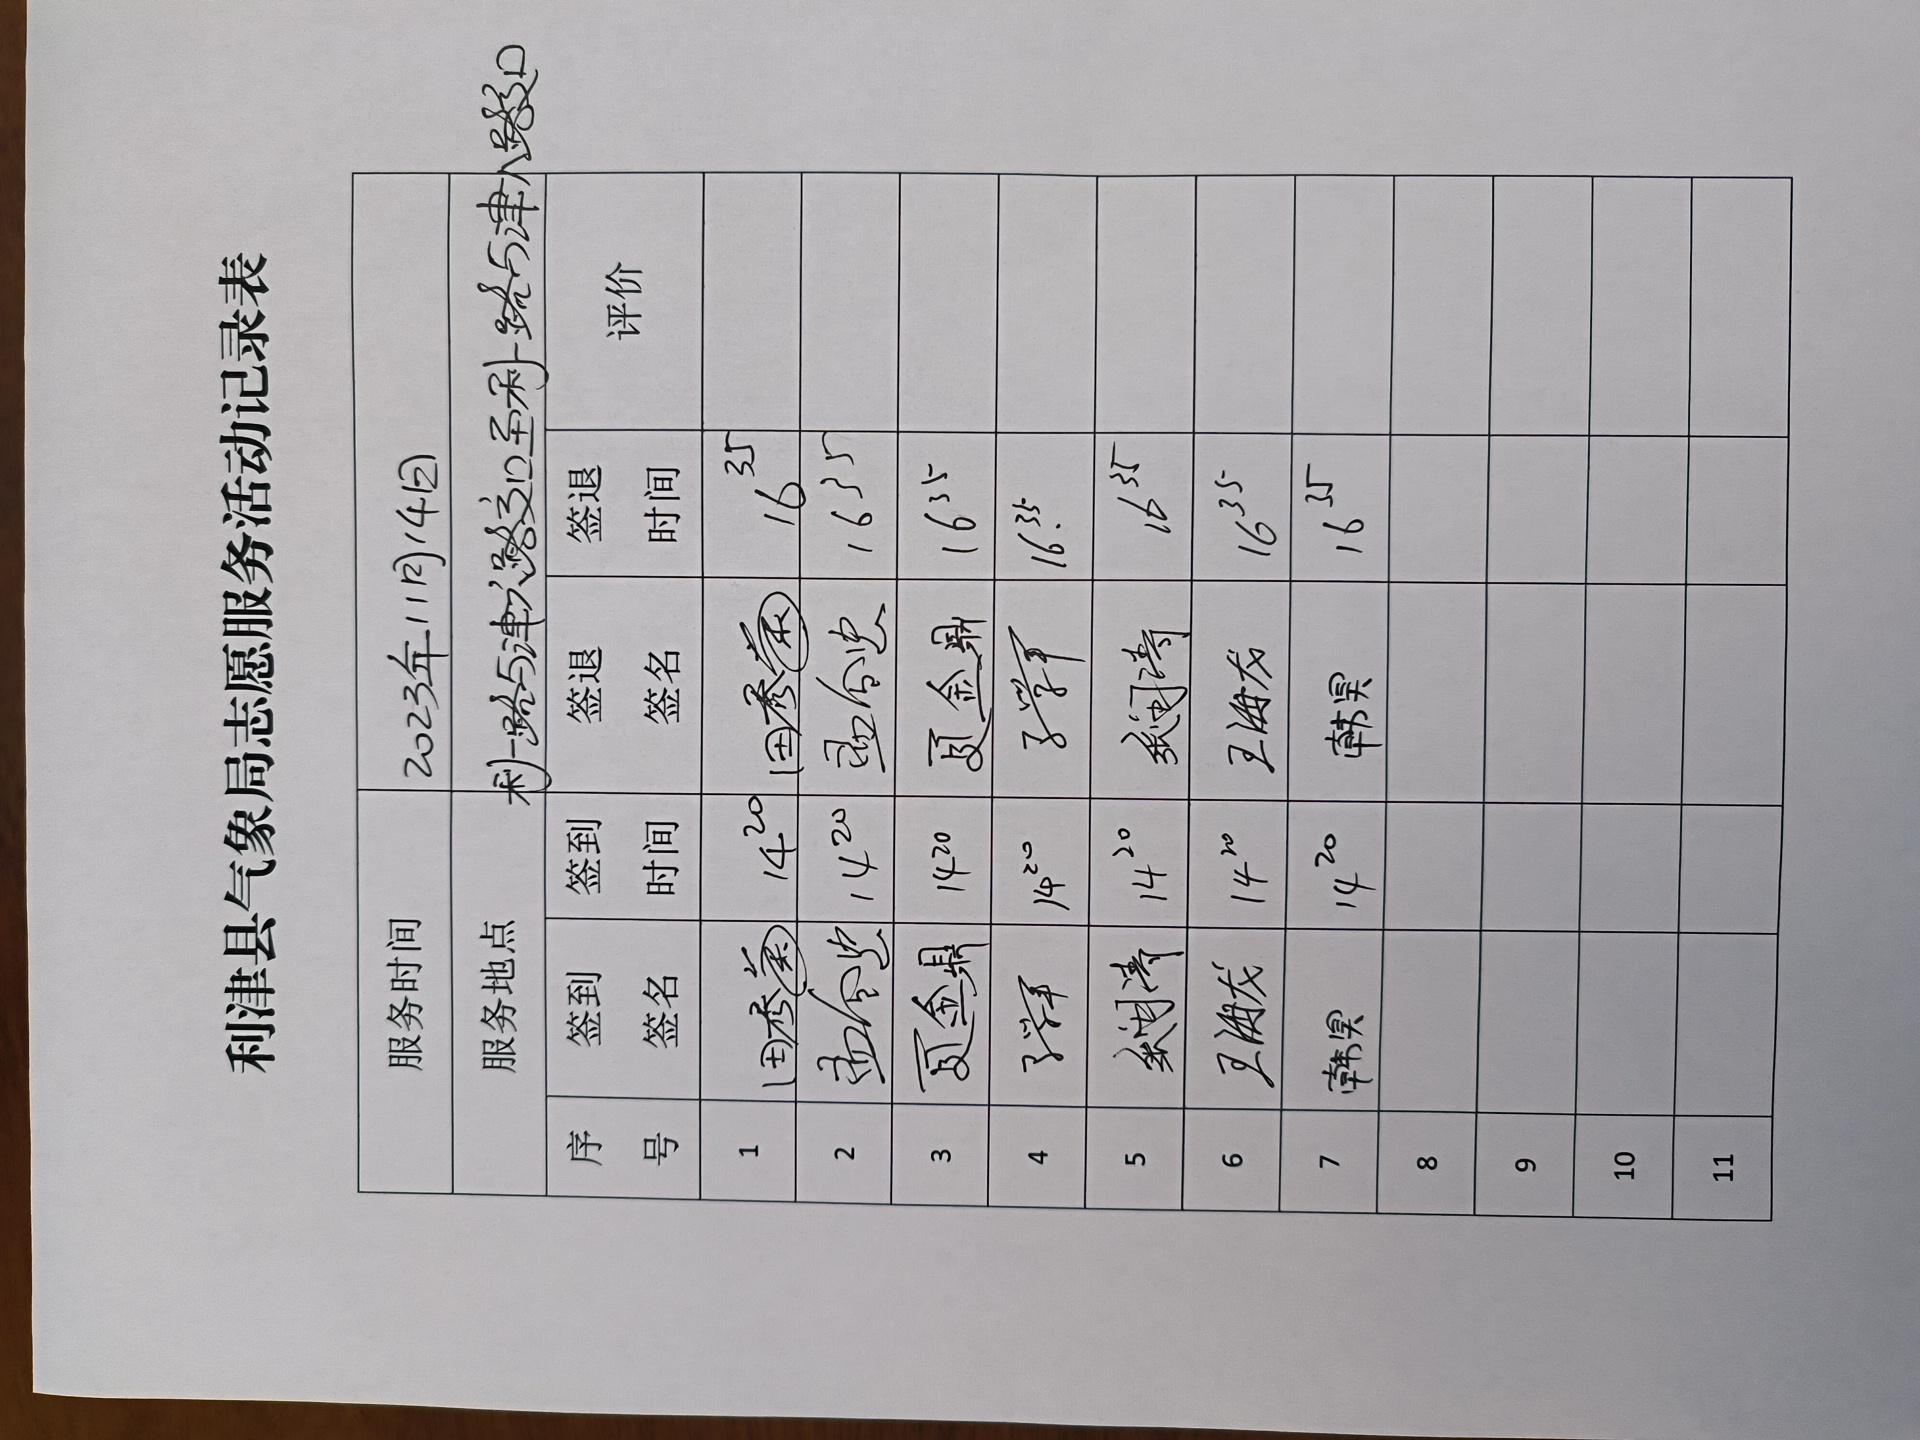 利津县气象局志愿服务活动记录表
服务时间 2023年11月14日
服务地点 利一路与津 路交口至利一路与津八路交口
序号 签到签名 签到时间 签退签名 签退时间 评价
1 田秀 14 20 田秀 16 35
2 孟令忠 14 20 孟令忠 16 35
3 夏金鼎 14 20 夏金鼎 16 35
4 14 20 16 35
5 张润涛 14 20 张润涛 16 35
6 王海龙 14 20 王海龙 16 35
7 韩昊 14 20 韩昊 16 35
8
9
10
11